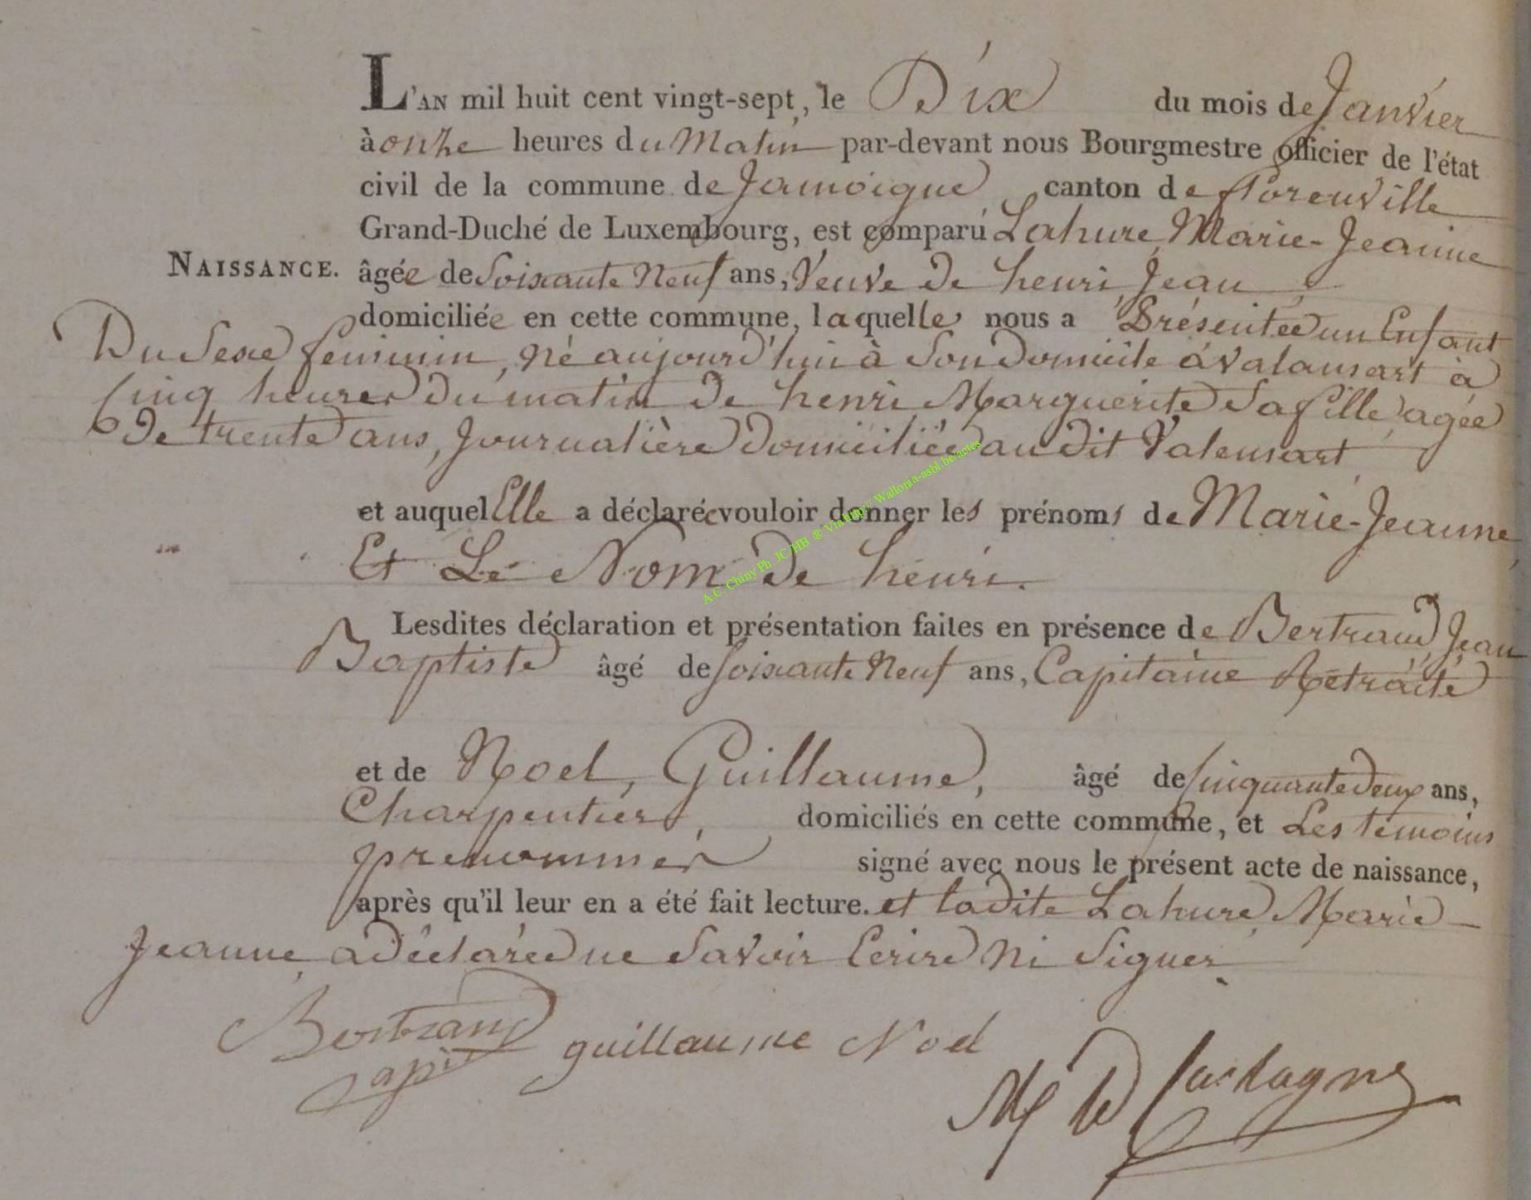 L'AN mil huit cent vingt-sept, le Dix du mois de Janvier
à onze heures du Matin par-devant nous Bourgmestre officier de l'état
civil de la commune de Jamoigne canton de florenville
Grand-Duché de Luxembourg, est comparu Lahure, Marie-Jeanne
NAISSANCE. âgée de Soixante Neuf ans, Veuve de henri Jean
domiciliée en cette commune, laquelle nous a Présentée un Enfant
Du Sexe feminin, né aujourd'hui à Son Domicile á Valansart à
Cinq heures du matin de henri Marguerite Sa fille, agée
de trente ans, Journalière domiciliée au dit Valensart
et auquel Elle a déclaré vouloir donner les prénoms de Marie-Jeanne,
Et Le Nom de henri.
Lesdites déclaration et présentation faites en présence de Bertrand, Jean
Baptiste âgé de soixante Neuf ans, Capitaine Retraité
et de Noel, Guillaume, âgé de Cinquante deux ans,
Charpentier, domiciliés en cette commune, et Les témoins
prenommés signé avec nous le présent acte de naissance,
après qu'il leur en a été fait lecture. et ladite Lahure, Marie
Jeanne, a déclarée ne Savoir Ecrire ni Signer.
Bertrand
guillaume Noel
A.C. Chiny Ph. JC/HB @